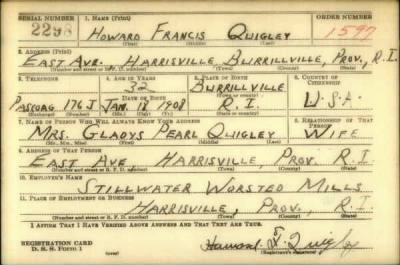 SERIAL NUMBER 1. NAME (Print) ORDER NUMBER
2298 HOWARD FRANCIS QUIGLEY 1597
(First) (Middle) (Last)
2. ADDRESS (Print)
EAST AVE. HARRISVILLE BURRILLVILLE, PROV., R.I.
(Number and street or R. F. D. number) (Town) (County) (State)
3. TELEPHONE 4. AGE IN YEARS 5. PLACE OF BIRTH 6. COUNTRY OF CITIZENSHIP
32 BURRILLVILLE
DATE OF BIRTH (Town or county)
PASCOAG 176 J JAN. 18 1908 R.I. U.S.A.
(Exchange) (Number) (Mo.) (Day) (Yr.) (State or country)
7. NAME OF PERSON WHO WILL ALWAYS KNOW YOUR ADDRESS 8. RELATIONSHIP OF THAT PERSON
MRS. GLADYS PEARL QUIGLEY WIFE
(Mr., Mrs., Miss) (First) (Middle) (Last)
9. ADDRESS OF THAT PERSON
EAST AVE HARRISVILLE, PROV. R.I.
(Number and street or R. F. D. number) (Town) (County) (State)
10. EMPLOYER'S NAME
STILLWATER WORSTED MILLS
11. PLACE OF EMPLOYMENT OR BUSINESS
HARRISVILLE, PROV., R.I.
(Number and street or R. F. D. number) (Town) (County) (State)
I AFFIRM THAT I HAVE VERIFIED ABOVE ANSWERS AND THAT THEY ARE TRUE.
REGISTRATION CARD
D. S. S. FORM 1 Howard F. Quigley
(Registrant's signature)